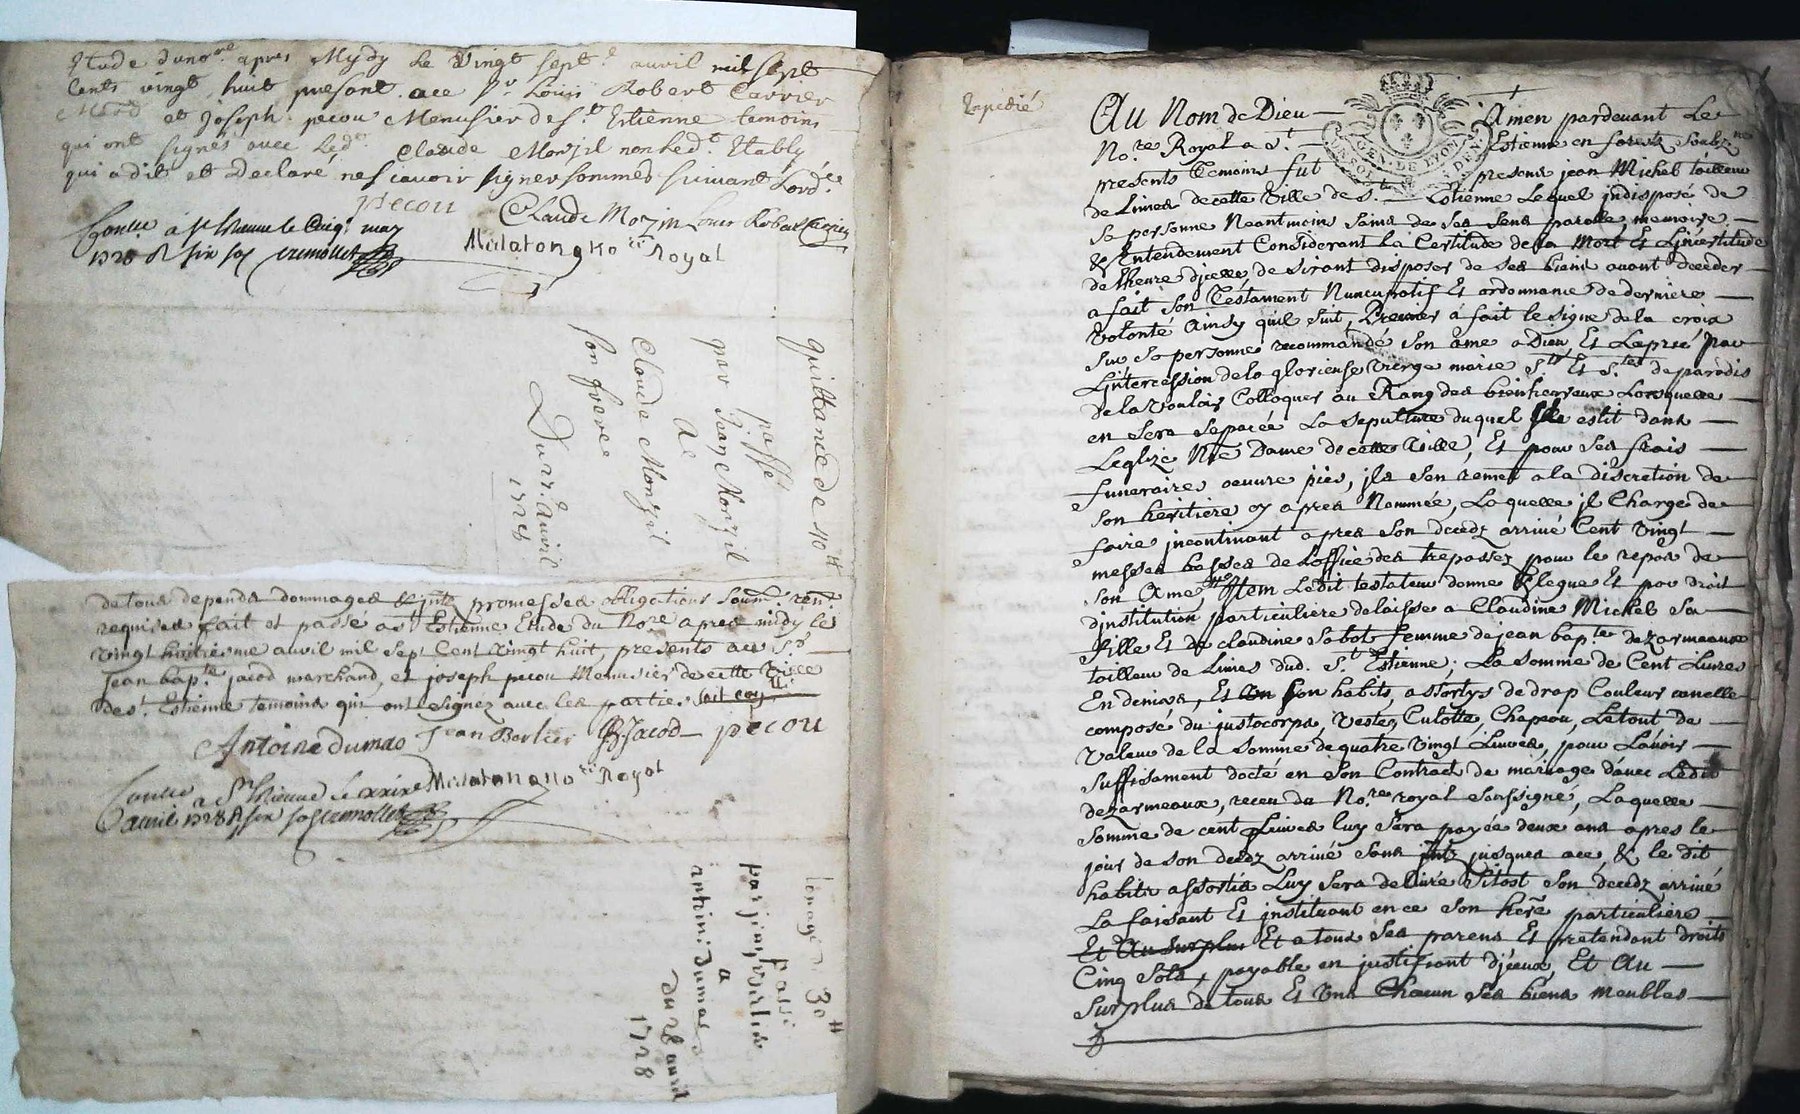 Etude dud no.re apres Mydy le Vingt sept.e avril mil sept
Cents vingt huit present ace s.r Louis Robert Carrier
March.d et Joseph pecou Menusier de S.t Etienne temoins
qui ont signés avec led.t Claude Monzil non led.t Etably
qui a dit et Declaré nescavoir signer sommés suivant Lord.ce
pecou Claude Mozin Louis Robert Carrier
Conlle à St Etienne le Cinq.e may
1728 R six sols cremollet
Royal
quittance de 10 tt
passé
par Jeane Monzil
A
Claude Monzil
son frere
Du 27.e avril
1728
de tous depends dommages & jnts promesses obligations soum.s ren.s
requises fait et passé a S.t Estienne Etude du No.re apres midy le
vingt huitieme avril mil sept Cent vingt huit, presents ace S.r
Jean bap.te jacod marchand, et joseph pecou Menusier de cette Ville
de S.t Estienne temoins qui ont signéz avec les parties
Antoine dumas Jean Berlier JBJacod pecou
Royal
Conlle a St Etienne le
avril 1728 R six sols cremollet
30 tt
passé
par
a
antoine dumas
du 28 avril
1728
Expedié
Au Nom de Dieu Amen pardevant Le
No.re Royal a S.t Estienne en forest soubz.né
presents Temoins fut present jean Michel tailleur
de Limes de cette Ville de S.t Estienne Lequel jndisposé de
sa personne Neantmoins sains de ses sens parolle, memoire
& Entendement Considerant la Certitude de la Mort Et L'jncertitude
de lheure djcelle desirant disposer de ses biens avant deceder
a fait son Testament Nuncupatif Et ordonnance de derniere
Volonté Ainsy quil suit, Premier à fait le signe de la croix
sur sa personne recommandé son ame a Dieu Et La prié par
Ljntercession de la glorieuse vierge marie S.ts Et S.tes de paradis
de la vouloir Colloquer au Rang des bienheureux Lorsquelle
en sera separée La sepulture duquel jl a eslit dans
Leglize N.re Dame de cette Ville, Et pour ses frais
funeraires oeuvre pies, jl s'en remet a la discretion de
son heritiere cy apres Nommée, Laquelle jl Charge de
faire jncontinant apres son decedz arrivé Cent vingt
messes basses de Loffice des trepassez pour le repos de
son Ame Item Ledit testateur donne & legue Et par droit
djnstitution particuliere delaisse a Claudine Michel sa
fille Et de claudine sabot femme de jean bap.te dezarmeaux
tailleur de Limes dud. S.t Estienne, La somme de Cent Livres
En deniers, Et un son habits assortys de drap Couleur canelle
composé du justocorps, vestes, Culotte, Chapeau, Le tout de
valeur de la somme de quatre vingt Livres, pour Lavoir
suffisament doté en son Contract de mariage d'avec Ledit
dezarmeaux, receu du No.re royal soussigné, Laquelle
somme de cent Livres luy sera payée deux ans apres le
jour de son decedz arrivé sans jntz jusques ace, & le dit
habits assortis Luy sera delivré sitost son decedz arrivé
La faisant Et jnstituant en ce son here particuliere
Et Au surplus Et a tous ses parens Et pretendant droits
Cinq sols, payable en justifiant djceux, Et Au
surplus de tous Et Uns Chacun ses biens meubles